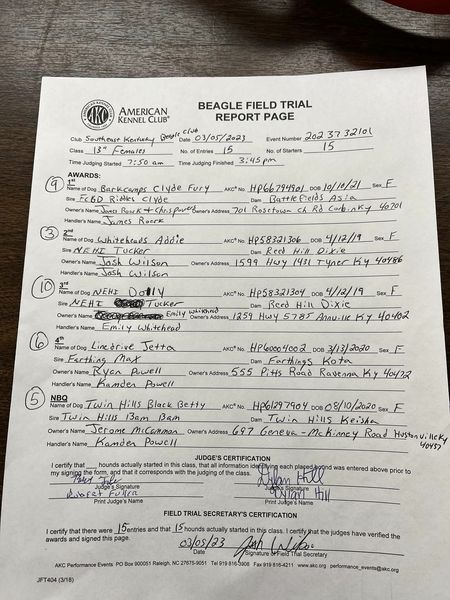 AMERICAN KENNEL CLUB®
BEAGLE FIELD TRIAL REPORT PAGE
Club Southeast Kentucky Beagle Club Date 03/05/2023 Event Number 2023732101
Class 13" Females No. of Entries 15 No. of Starters 15
Time Judging Started 7:50 am Time Judging Finished 3:45pm
AWARDS:
9 1st
Name of Dog Barkcamps Clyde Fury AKC® No. HP66794901 DOB 10/10/21 Sex F
Sire FCBD Ridles Clyde Dam Battlefields Asia
Owner's Name James Roark + Chris Powell Owner's Address 701 Rosetown Ch Rd Corbin Ky 40701
Handler's Name James Roark
3 2nd
Name of Dog Whiteheads Addie AKC® No. HP58321306 DOB 4/12/19 Sex F
Sire NEHI Tucker Dam Reed Hill Dixie
Owner's Name Josh Wilson Owner's Address 1599 Hwy 1431 Tyner Ky 40486
Handler's Name Josh Wilson
10 3rd
Name of Dog NEHI Dolly AKC® No. HP58321304 DOB 4/12/19 Sex F
Sire NEHI Tucker Dam Reed Hill Dixie
Owner's Name Emily Whitehead Owner's Address 1259 Hwy 578S Annville Ky 40402
Handler's Name Emily Whitehead
6 4th
Name of Dog Linedrive Jetta AKC® No. HP60004002 DOB 3/13/2020 Sex F
Sire Farthing Max Dam Farthings Kota
Owner's Name Ryan Powell Owner's Address 555 Pitts Road Ravenna Ky 40472
Handler's Name Kamden Powell
5 NBQ
Name of Dog Twin Hills Black Betty AKC® No. HP61297904 DOB 08/10/2020 Sex F
Sire Twin Hills Bam Bam Dam Twin Hills Keisha
Owner's Name Jerome McCammon Owner's Address 697 Geneva - McKinney Road Hustonville Ky 40437
Handler's Name Kamden Powell
JUDGE'S CERTIFICATION
I certify that hounds actually started in this class, that all information identifying each placed hound was entered above prior to
my signing the form, and that it corresponds with the judging of the class.
Judge's Signature Dylan Hill Judge's Signature
Robert Fuller Dylan Hill
Print Judge's Name Print Judge's Name
FIELD TRIAL SECRETARY'S CERTIFICATION
I certify that there were 15 entries and that 15 hounds actually started in this class. I certify that the judges have verified the
awards and signed this page.
03/05/23
Date Signature of Field Trial Secretary
AKC Performance Events PO Box 900051 Raleigh, NC 27675-9051 Tel 919 816-3908 Fax 919 816-4211 www.akc.org performance_events@akc.org
JFT404 (3/18)